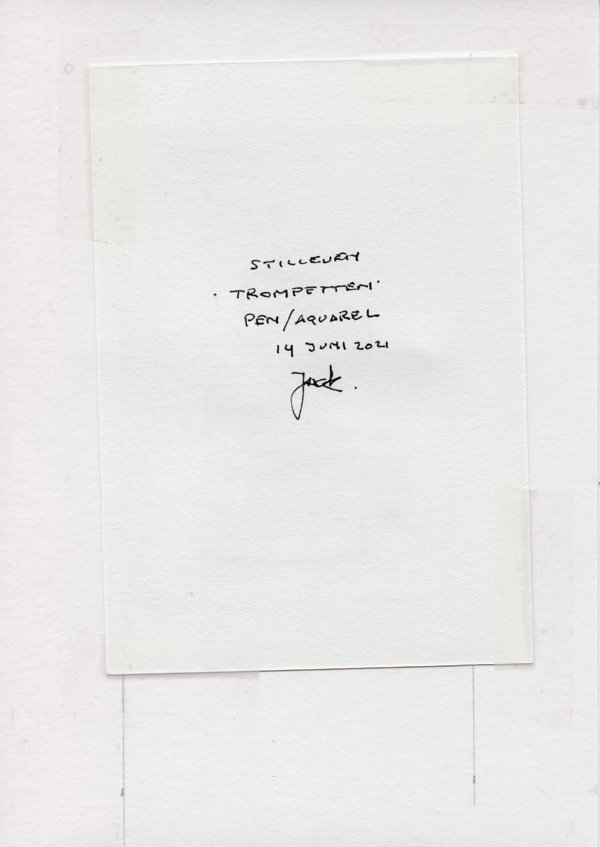 STILLEVEN
'TROMPETTEN'
PEN/AQUAREL
14 JUNI 2021
Jack.